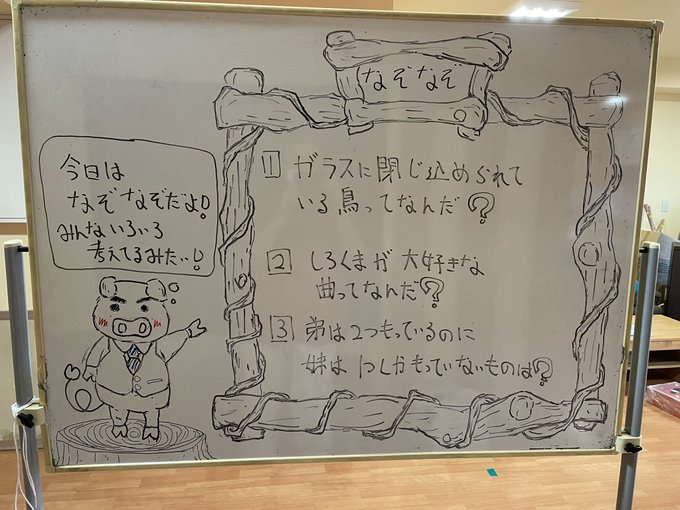 なぞなぞ
今日は
なぞなぞだよ!
みんないろいろ
考えてるみたい!
1 ガラスに閉じ込められて
いる鳥ってなんだ?
2 しろくまが大好きな
曲ってなんだ?
3 弟は2つもっているのに
妹は1つしかもっていないものは?